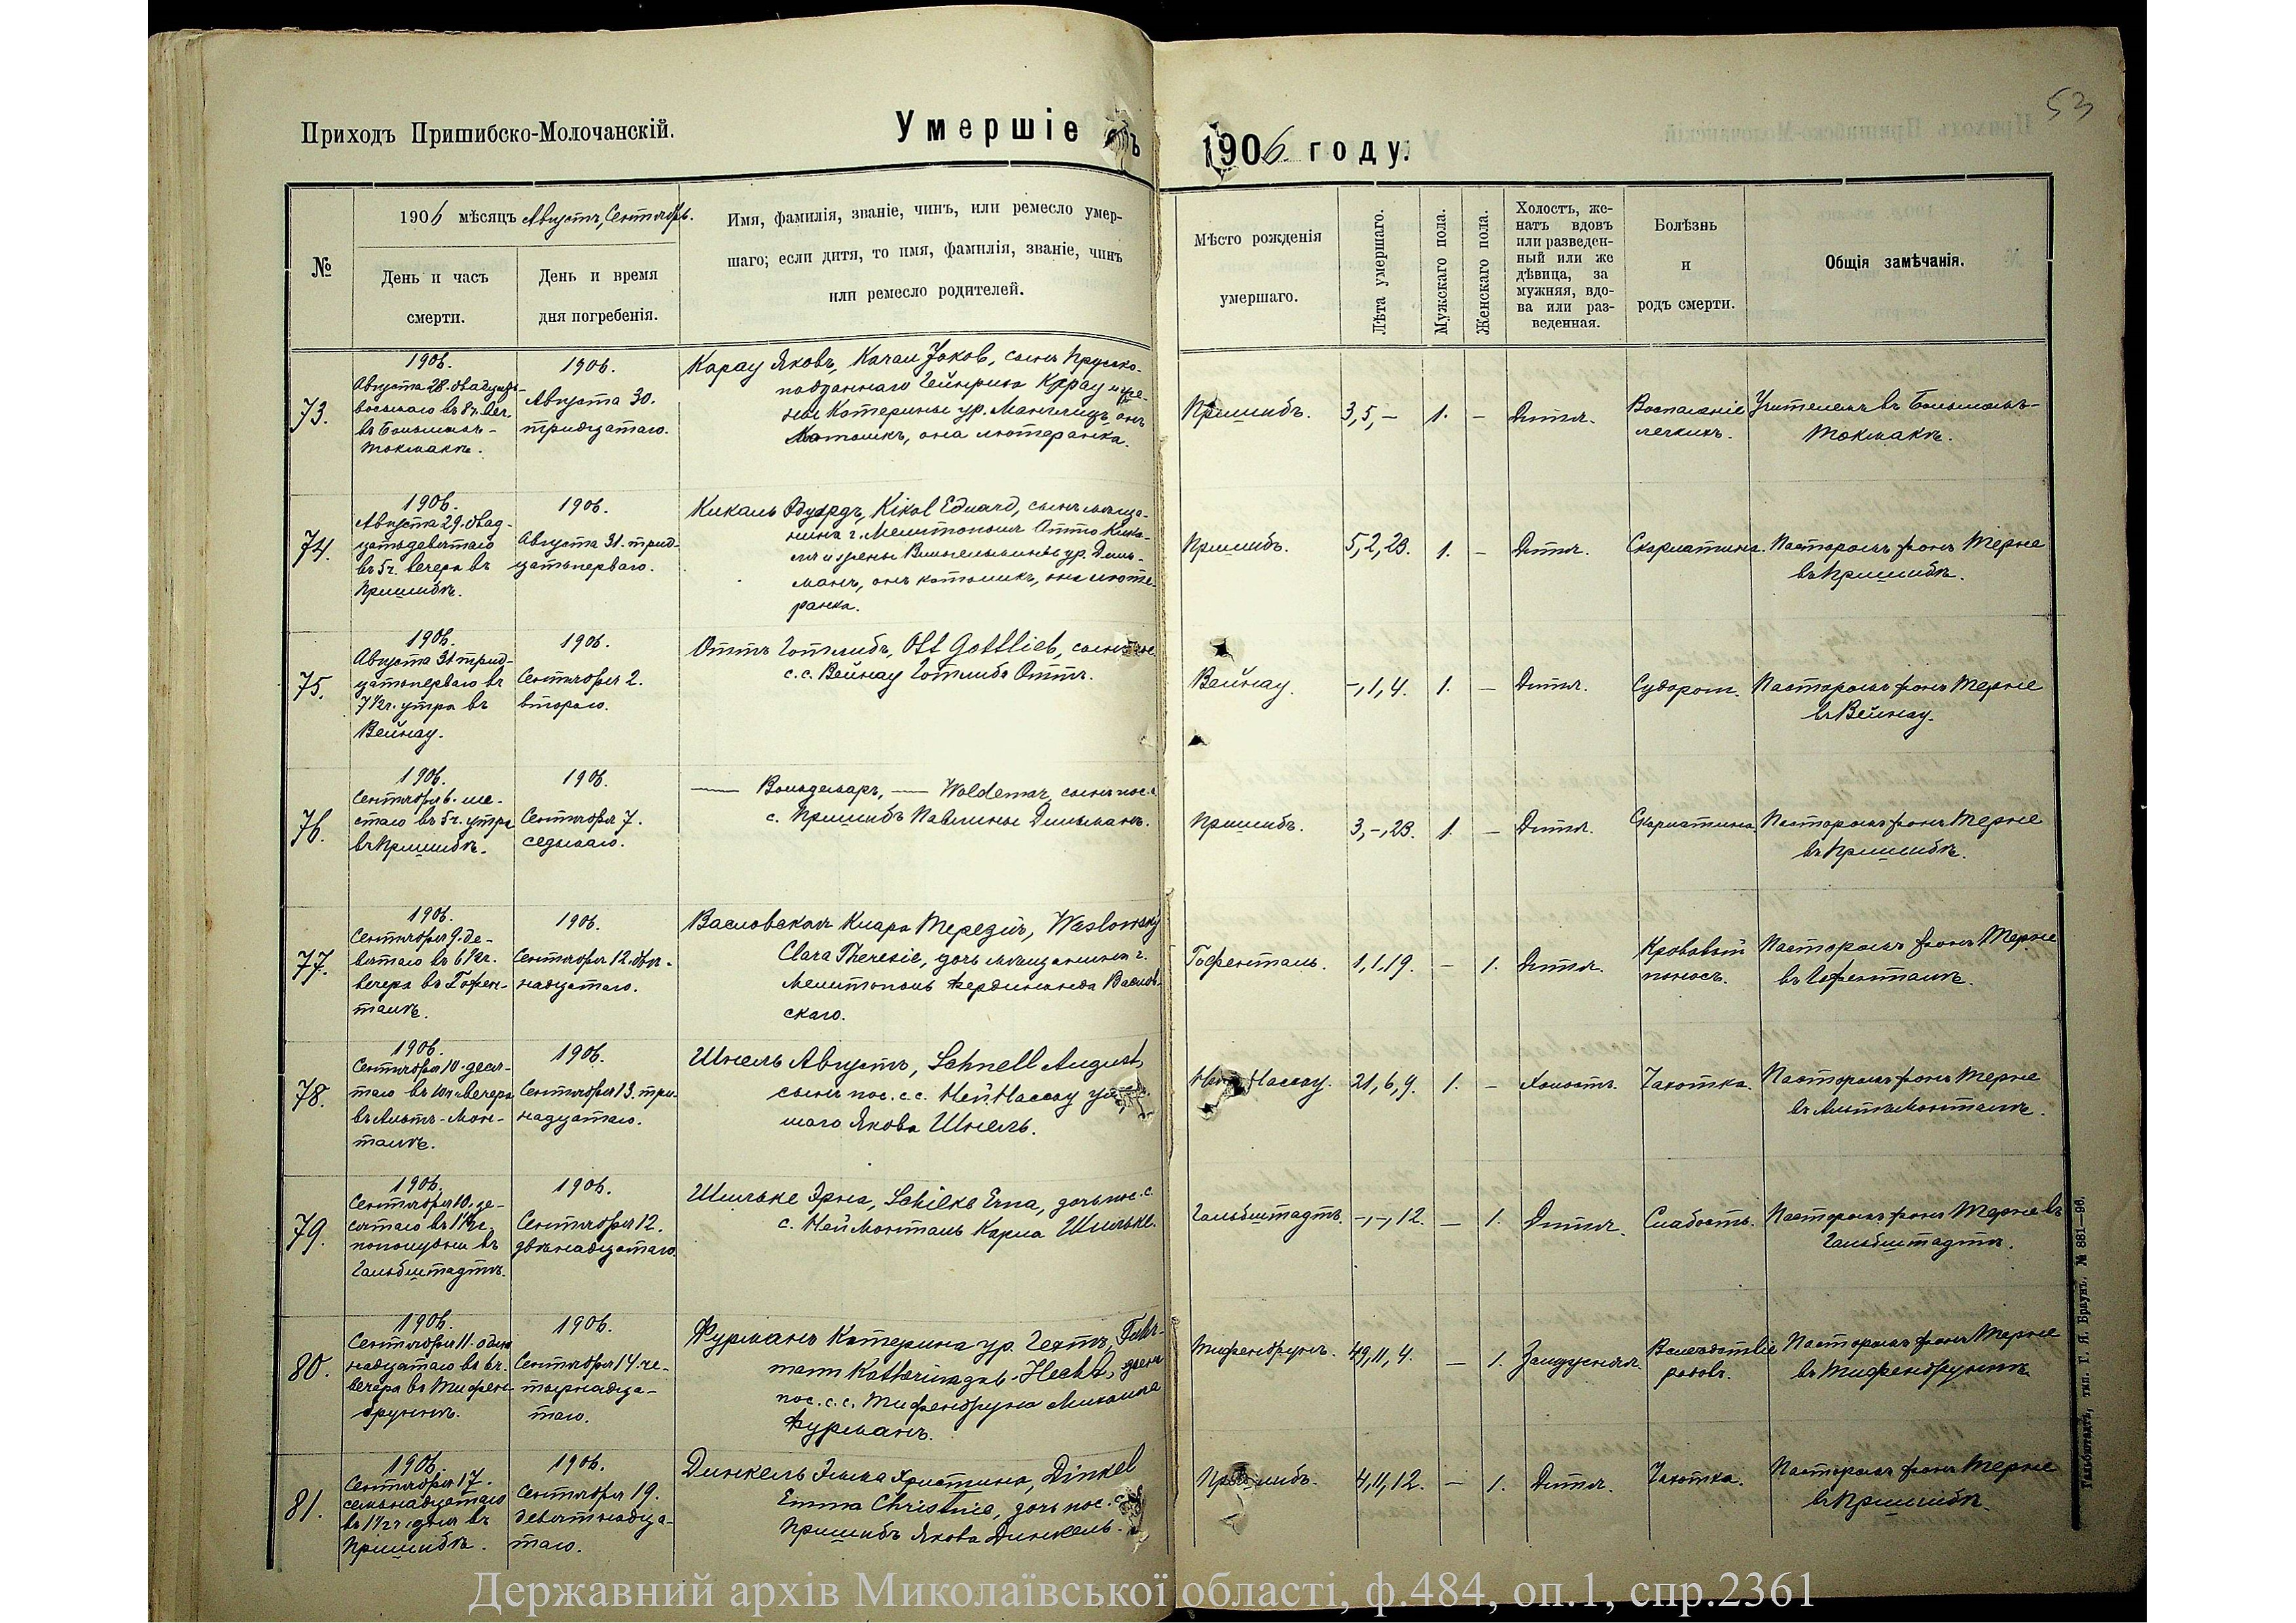 53
Приходъ Пришибско-Молочанскій.
Умершіе
1906 году.
№
1906 мѣсяцъ Августъ, Сентябрь.
День и часъ
смерти.
День и время
дня погребенія.
Имя, фамилія, званіе, чинъ, или ремесло умер-
шаго; если дитя, то имя, фамилія, званіе, чинъ
или ремесло родителей.
Мѣсто рожденія
умершаго.
Лѣта умершаго.
Мужскаго пола.
Женскаго пола.
Холостъ, же-
натъ вдовъ
или разведен-
ный или же
дѣвица, за
мужняя, вдо-
ва или раз-
веденная.
Болѣзнь
и
родъ смерти.
Общія замѣчанія.
73.
1906.
Августа 28. двадцать
восьмаго въ 8 ч. веч.
въ Большомъ-
Токмакѣ.
1906.
Августа 30.
тридцатаго.
Карау Яковъ, Jakob, сынъ Прусско-
подданнаго Гейнриха Карау и же-
ны Катерины ур. онъ
Католикъ, она лютеранка.
Пришибъ.
3, 5, –
1.
–
Дитя.
Воспаленіе
легкихъ.
Учителемъ въ Большомъ-
Токмакѣ.
74.
1906.
Августа 29. двад-
цатьдевятаго
въ 5 ч. вечера въ
Пришибѣ.
1906.
Августа 31. трид-
цатьперваго.
Кикаль Эдуардъ, Kikal Eduard, сынъ мѣща-
нина г. Мелитополя Отто Кика-
ля и жены Вильгельмины ур. Диль-
манъ, онъ католикъ, она люте-
ранка.
Пришибъ.
5, 2, 23.
1.
–
Дитя.
Скарлатина.
Пасторомъ фонъ Терне
въ Пришибѣ.
75.
1906.
Августа 31 трид-
цатьперваго въ
7½ ч. утра въ
Вейнау.
1906.
Сентября 2.
втораго.
Оттъ Готлибъ, Ott Gottlieb, сынъ пос.
с. с. Вейнау Готлиба Оттъ.
Вейнау.
–, 1, 4.
1.
–
Дитя.
Судороги.
Пасторомъ фонъ Терне
въ Вейнау.
76.
1906.
Сентября 6. ше-
стаго въ 5 ч. утра
въ Пришибѣ.
1906.
Сентября 7.
седьмаго.
— Вольдемаръ, — Woldemar, сынъ пос. с.
с. Пришибъ Павлины Дильманъ.
Пришибъ.
3, –, 23.
1.
–
Дитя.
Скарлатина.
Пасторомъ фонъ Терне
въ Пришибѣ.
77.
1906.
Сентября 9. де-
вятаго въ 6½ ч.
вечера въ Гофен-
талѣ.
1906.
Сентября 12. двѣ-
надцатаго.
Васловская Клара Терезія, Waslowsky
Clara Theresie, дочь мѣщанина г.
Мелитополь ФердинандаВаслов-
скаго.
Гофенталь.
1, 1, 19.
–
1.
Дитя.
Кровавый
поносъ.
Пасторомъ фонъ Терне
въ Гофенталѣ.
78.
1906.
Сентября 10. деся-
таго въ 10 ч. вечера
въ Альтъ-Мон-
талѣ.
1906.
Сентября 13. три-
надцатаго.
Шнель Августъ, Schnell August,
сынъ пос. с. с. Ней-Нассау
шаго Якова Шнель.
Ней-Нассау.
21, 6, 9.
1.
–
Холостъ.
Чахотка.
Пасторомъ фонъ Терне
въ Альтъ-Монталѣ.
79.
1906.
Сентября 10. де-
сятаго въ 1½ ч.
пополудни въ
Гальбштадтѣ.
1906.
Сентября 12.
двѣнадцатаго.
Шильке Эрна, Schilke Erna, дочь пос. с.
с. Ней Монталь Карла Шильке.
Гальбштадтъ.
–, –, 12.
–
1.
Дитя.
Слабость.
Пасторомъ фонъ Терне въ
Гальбштадтѣ.
80.
1906.
Сентября 11. один-
надцатаго въ 6 ч.
вечера въ Тифен-
бруннѣ.
1906.
Сентября 14. че-
тырнадца-
таго.
Фурманъ Катерина ур. Гехтъ, Fuhr-
mann Katharina geb. Hecht, жена
пос. с. с. Тифенбруна Михаила
Фурманъ.
Тифенбрунъ.
49, 11, 4.
–
1.
Замужняя.
Вслѣдствіе
родовъ.
Пасторомъ фонъ Терне
въ Тифенбруннѣ.
81.
1906.
Сентября 17.
семьнадцатаго
въ 1½ ч. дня въ
Пришибѣ.
1906.
Сентября 19.
девятнадца-
таго.
Динкель Эмма Христина, Dinkel
Emma Christine, дочь пос. с.
Пришибъ Якова Динкель.
Пришибъ.
4, 11, 12.
–
1.
Дитя.
Чахотка.
Пасторомъ фонъ Терне
въ Пришибѣ.
Гальбштадтъ, тип. Г. Я. Браунъ. № 881—96.
Державний архів Миколаївської області, ф.484, оп.1, спр.2361